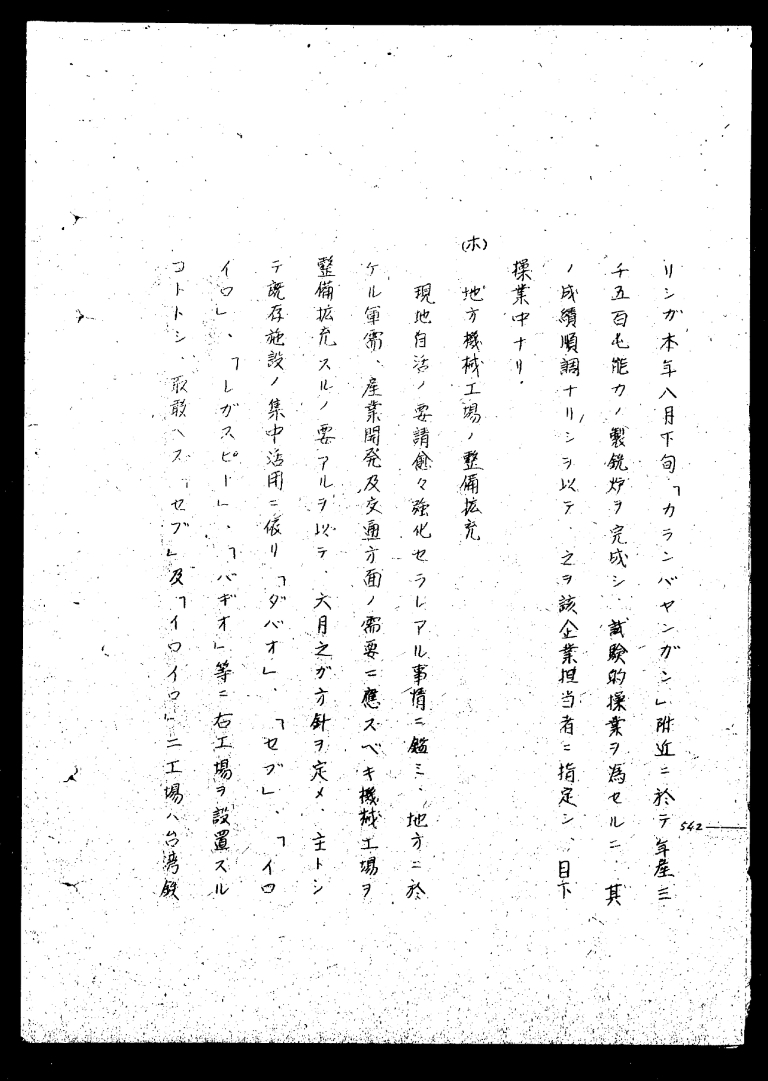 リシガ本年八月下旬「カランバヤンガン」附近ニ於テ年産三
千五百屯能力ノ製銑炉ヲ完成シ、試験的操業ヲ為セルニ、其
ノ成績順調ナリシヲ以テ、之ヲ該企業担当者ニ指定シ、目下
操業中ナリ。
(ホ) 地方機械工場ノ整備拡充
現地自活ノ要請愈々強化セラレアル事情ニ鑑ミ、地方ニ於
ケル軍需、産業開発及交通方面ノ需要ニ應スベキ機械工場ヲ
整備拡充スルノ要アルヲ以テ、六月之ガ方針ヲ定メ、主トシ
テ既存施設ノ集中活用ニ依リ「ダバオ」、「セブ」、「イロ
イロ」、「レガスピー」、「バギオ」等ニ右工場ヲ設置スル
コトトシ、取敢ヘス「セブ」及「イロイロ」ニ工場ハ台湾鉄
542